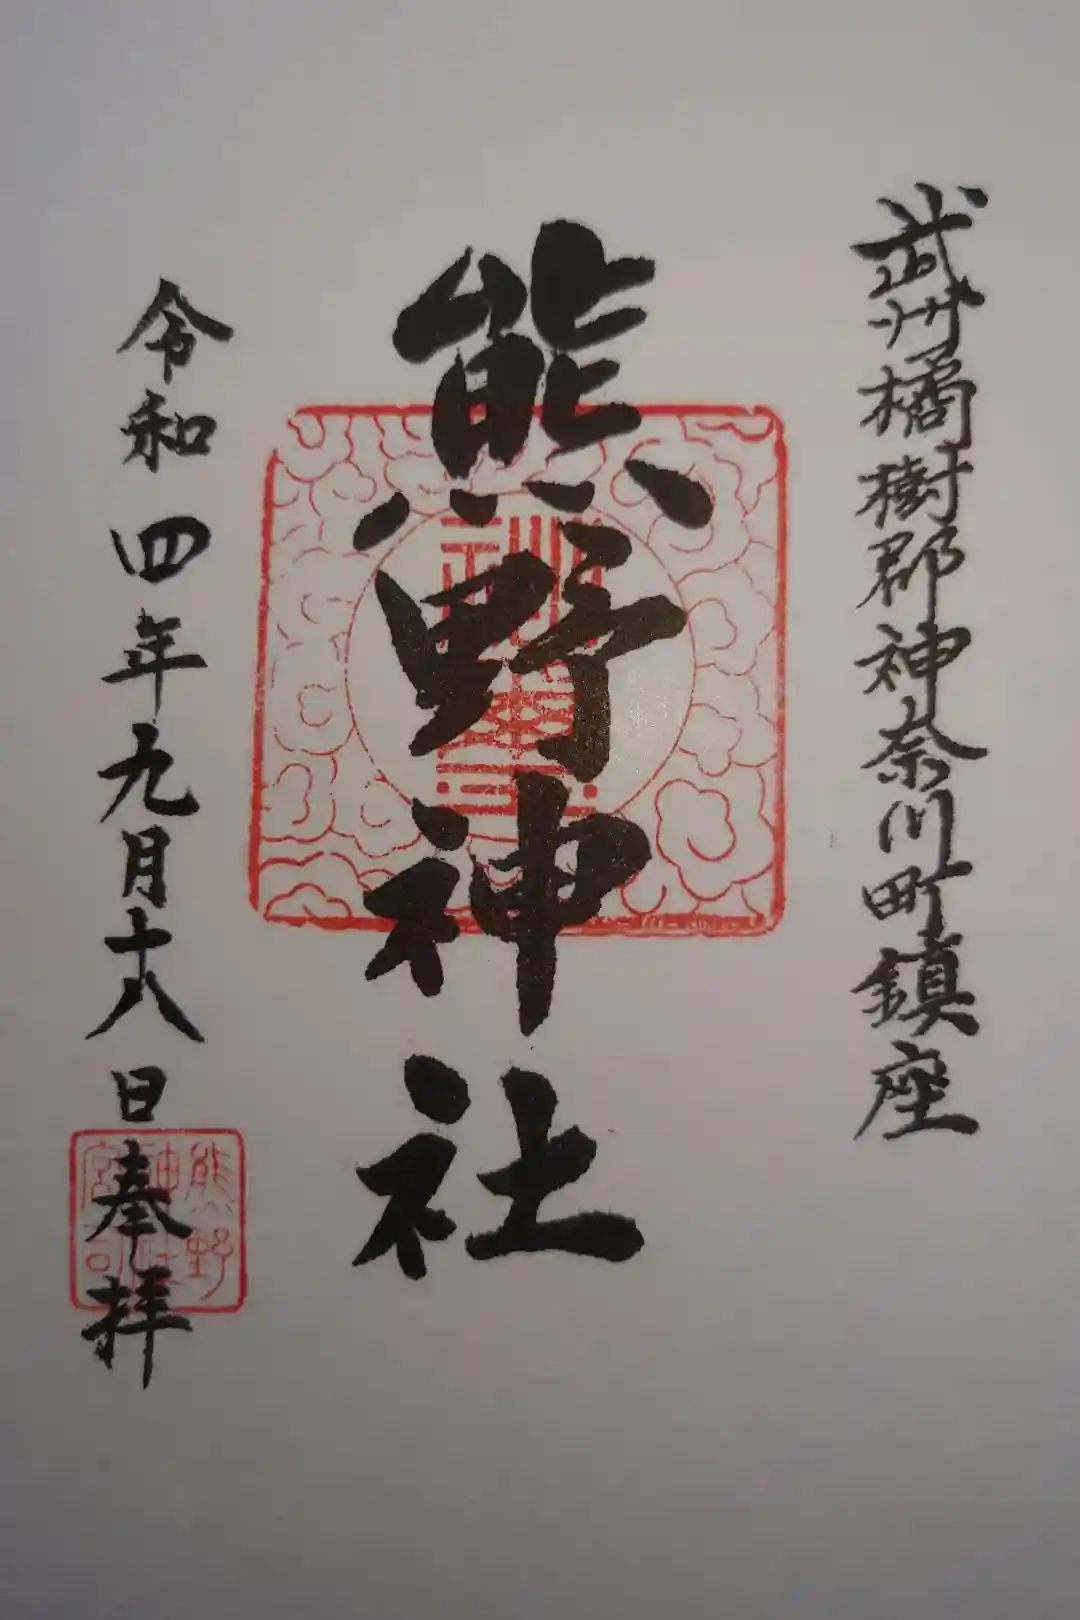 武州橘樹郡神奈川町鎮座
熊野神社
令和四年九月十八日奉拝
熊野
神社
宮司